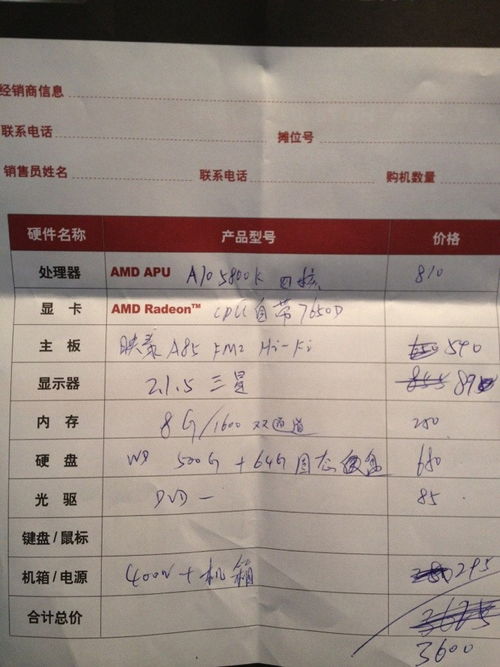 经销商信息
联系电话 摊位号
销售员姓名 联系电话 购机数量
硬件名称 产品型号 价格
处理器 AMD APU A10 5800K 四核 810
显 卡 AMD Radeon™ CPU自带7650D
主 板 映泰 A85 FM2 Hi-Fi 590
显示器 21.5 三星
内 存 8G/1600 双通道 280
硬 盘 WD 500G + 64G 固态硬盘 680
光 驱 DVD 一 85
键盘 / 鼠标
机箱 / 电源 400W + 机箱 295
合计总价 3675
3600